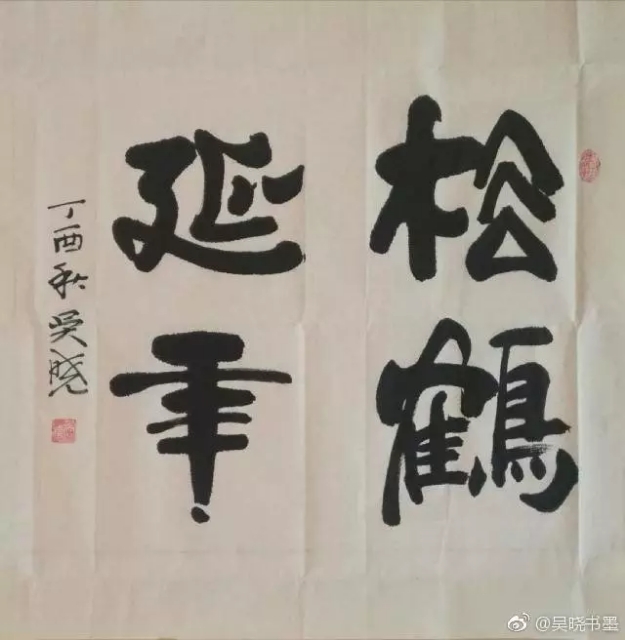 松鶴
延年
丁酉秋吴晓
@吴晓书墨